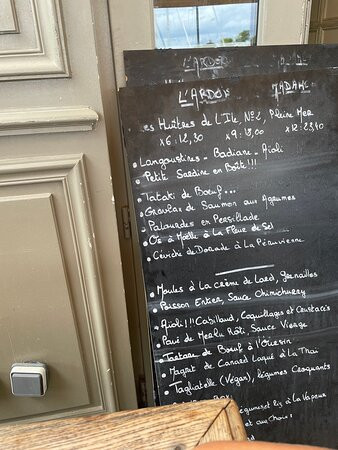 L'ARDOISE
L'ARDOX MADAME
Les Huîtres de L'Ile, N°2, Pleine Mer
x6: 12,30 x9: 18,00 x12: 23,40
• Langoustines - Badiane - Aioli
• Petite Sardine en Boîte !!!
• Tataki de Bœuf...
• Gravlax de Saumon aux Agrumes
• Palourdes en Persillade
• Os à Moelle à La Fleur de Sel
• Céviche de Dorade à La Péruvienne
• Moules à La crème de Lard, Grenailles
• Poisson Entier, Sauce Chimichurry
• Aioli !! Cabillaud, Coquillages et Crustacés
• Pavé de Merlu Rôti, Sauce Vierge
• Tartare de Bœuf à l'Oursin
• Magret de Canard Laqué à La Thaï
• Tagliatelle (Végan), légumes Croquants
légumes et riz à la Vapeur
et au choix :